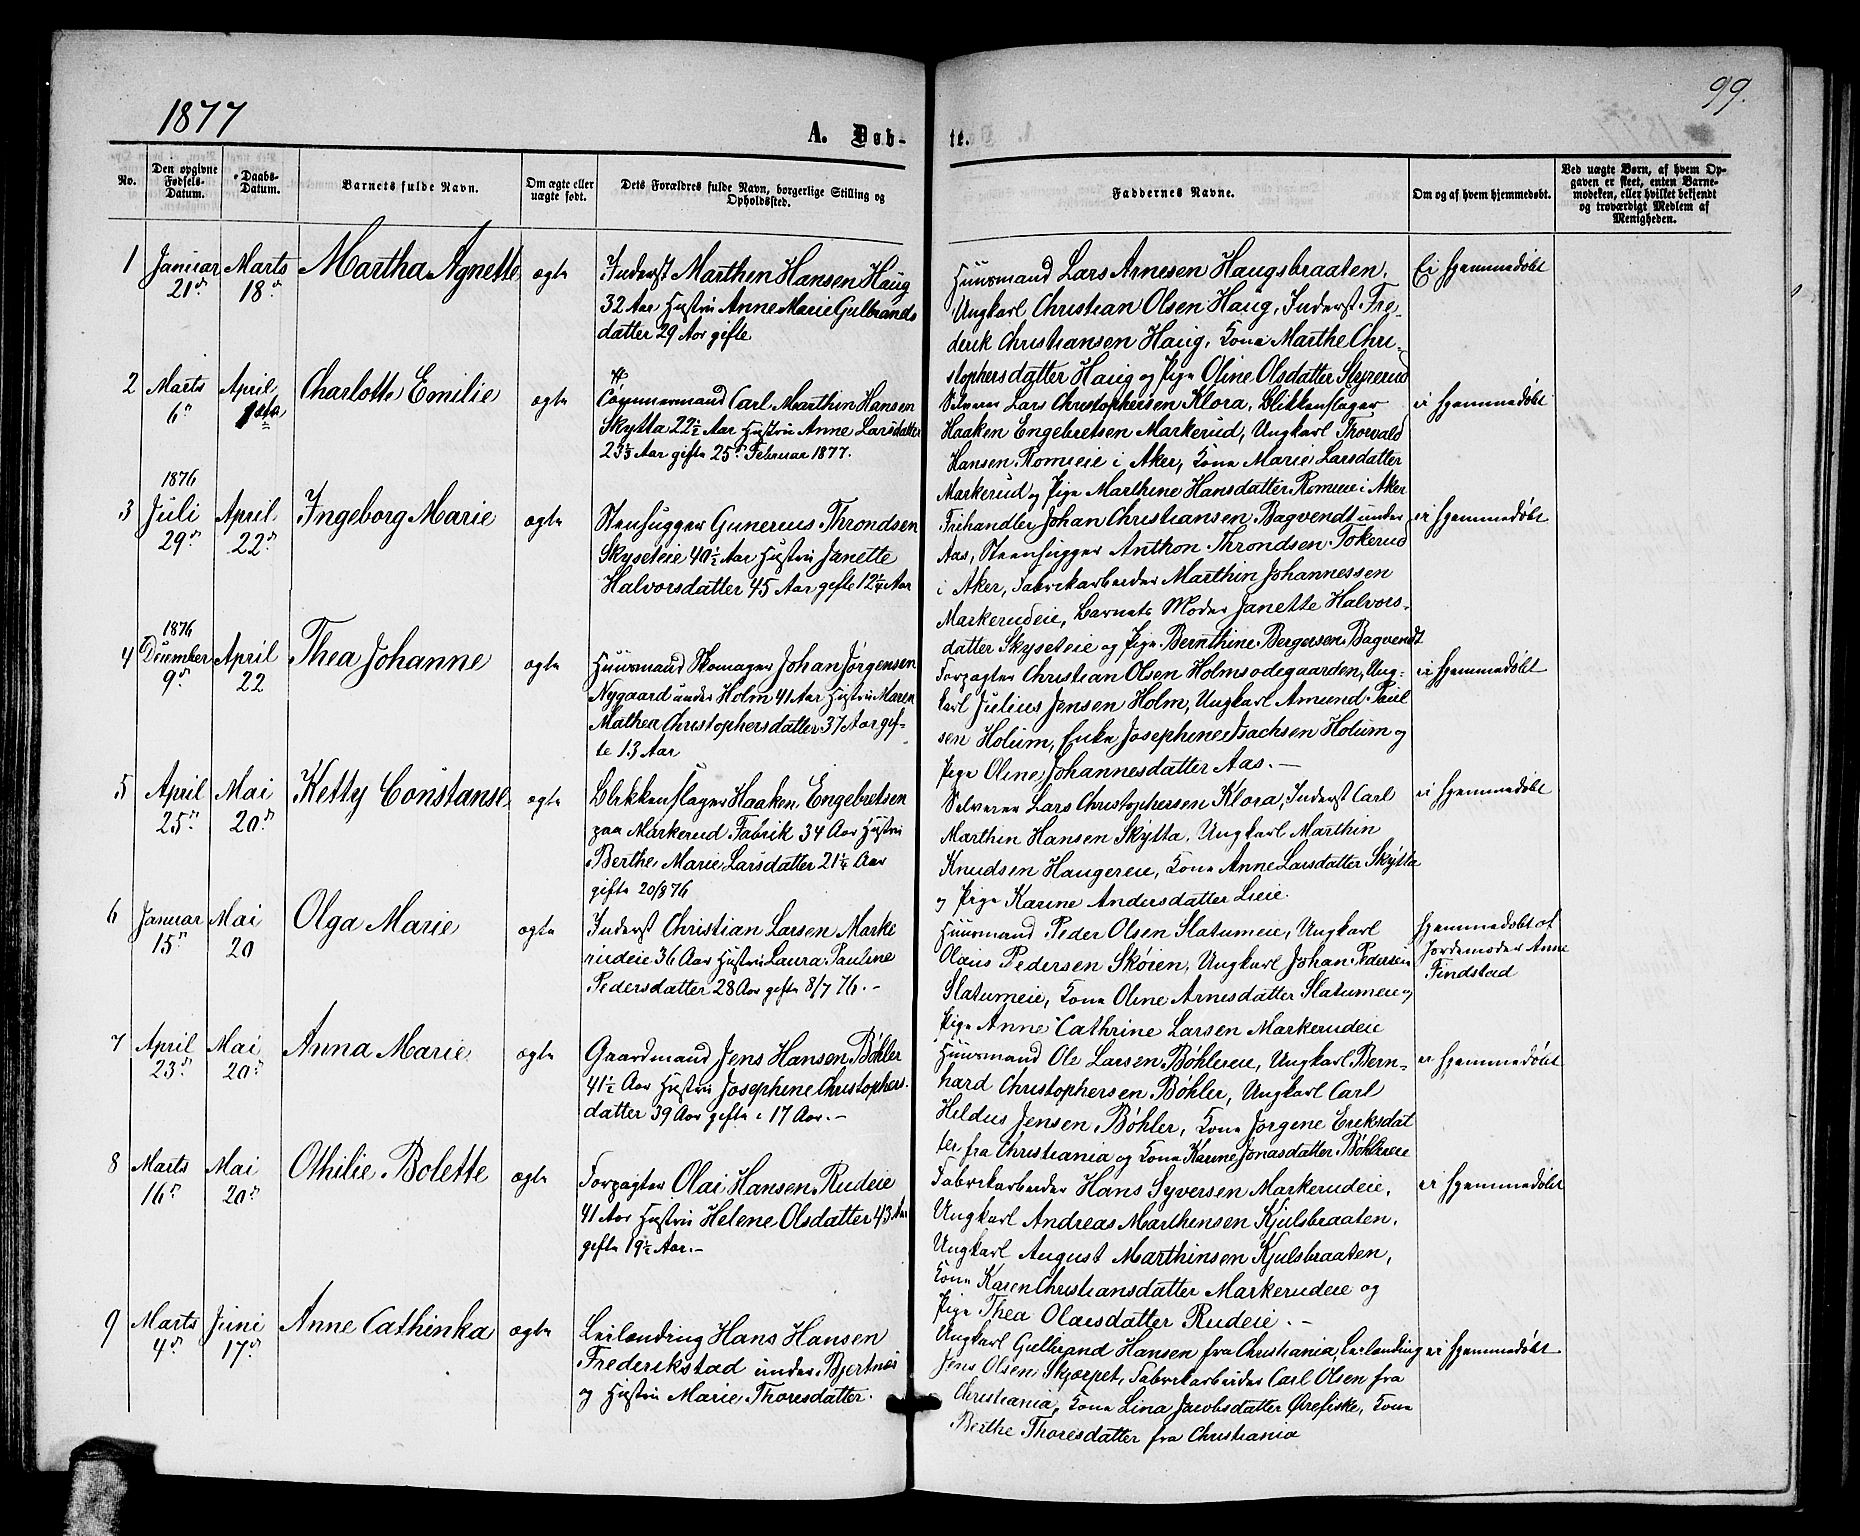 1877
99.
A. Døb-
te.
No.
Den opgivne Fødsels-Datum.
Daabs-Datum.
Barnets fulde Navn.
Om ægte eller uægte født.
Dets Forældres fulde Navn, borgerlige Stilling og Opholdssted.
Faddernes Navne.
Om og af hvem hjemmedøbt.
Ved uægte Børn, af hvem Opgaven er skeet, enten Barnemoderen, eller hvilket bekjendt og troværdigt Medlem af Menigheden.
1
Januar 21de
Marts 18de
Martha Agnette
ægte
Inderst Marthin Hansen Haug
32 Aar Hustru Anne Marie Gulbrands
datter 29 Aar gifte
Huusmand Lars Arnesen Haugsbraaten,
Ungkarl Christian Olsen Haug, Inderst Fre-
derik Christiansen Haug, Kone Marthe Chri-
stophersdatter Haug og Pige Oline Olsdatter Skyrerud
Ei hjemmedøbt
2
Marts 6te
April 1ste
Charlotte Emilie
ægte
Tømmermand Carl Marthin Hansen
Skytta 22½ Aar Hustru Anne Larsdatter
23⅓ Aar gifte 25de Februar 1877.
Selveier Lars Christophersen Klora, Blikkenslager
Haaken Engebretsen Markerud, Ungkarl Thorvald
Hansen Romeie i Aker, Kone Marie Larsdatter
Markerud og Pige Marthine Hansdatter Romeie i Aker
ei hjemmedøbt
3
1876
Juli 29de
April 22de
Ingeborg Marie
ægte
Stenhugger Gunerius Throndsen
Skyseteie 40½ Aar Hustru Janette
Halvorsdatter 45 Aar gifte 12¼ Aar
Frihandler Johan Christiansen Bagvendt under
Aas, Steenhugger Anthon Throndsen Tokerud
i Aker, Fabrikarbeider Marthin Johannessen
Markerudeie, Barnets Moder Janette Halvors-
datter Skyseteie og Pige Bernthine Bergersen Bagvendt
ei hjemmedøbt
4
1876
December 9de
April 22
Thea Johanne
ægte
Huusmand Skomager Johan Jørgensen
Nygaard under Holm 41 Aar Hustru Maren
Mathea Christophersdatter 37 Aar gif-
te 13 Aar
Forpagter Christian Olsen Holmsødegaarden, Ung-
karl Julius Jensen Holm, Ungkarl Amund Paul
sen Holum, Enke Josephine Isachsen Holum og
Pige Oline Johannesdatter Aas.—
ei hjemmedøbt
5
April 25de
Mai 20de
Ketty Constanse
ægte
Blikkenslager Haaken Engebretsen
paa Markerud Fabrik 34 Aar Hustru
Berthe Marie Larsdatter 21¼ Aar
gifte 20/8 76
Selveier Lars Christophersen Klora, Inderst Carl
Marthin Hansen Skytta, Ungkarl Marthin
Knudsen Haugereie, Kone Anne Larsdatter Skytta
og Pige Karine Andersdatter Lieie.
ei hjemmedøbt
6
Januar 15de
Mai 20
Olga Marie
ægte
Inderst Christian Larsen Marke
rudeie 36 Aar Hustru Laura Pauline
Pedersdatter 28 Aar gifte 8/7 76.—
Huusmand Peder Olsen Slatumeie, Ungkarl
Olaus Pedersen Skøien, Ungkarl Johan Pedersen
Slatumeie, Kone Oline Arnesdatter Slatumeie og
Pige Anne Cathrine Larsen Markerudeie
Hjemmedøbt af
Jordemoder Anne
Findstad
7
April 23de
Mai 20de
Anna Marie
ægte
Gaardmand Jens Hansen Bøhler
41½ Aar Hustru Josephine Christophers-
datter 39 Aar gifte i 17 Aar.—
Huusmand Ole Larsen Bøhlereie, Ungkarl Bern-
hard Christophersen Bøhler, Ungkarl Carl
Heldus Jensen Bøhler, Kone Jørgine Eriksdat
ter fra Christiania og Kone Karine Jonasdatter Bøhlereie
ei hjemmedøbt
8
Marts 16de
Mai 20de
Othilie Bolette
ægte
Forpagter Olai Hansen Rudeie
41 Aar Hustru Helene Olsdatter 43 Aar
gifte 19½ Aar.—
Fabrikarbeider Hans Syversen Markerudeie,
Ungkarl Andreas Marthinsen Kjulsbraaten,
Ungkarl August Marthinsen Kjulsbraaten,
Kone Karen Christiansdatter Markerudeie og
Pige Thea Olaisdatter Rudeie.—
ei hjemmedøbt
9
Marts 4de
Juni 17de
Anne Cathinka
ægte
Leilending Hans Hansen
Frederikstad under Bjertnes
og Hustru Marie Thoresdatter.
Ungkarl Gulbrand Hansen fra Christiania, Leilending
Jens Olsen Skjærpet, Fabrikarbeider Carl Olsen fra
Christiania, Kone Lina Jacobsdatter Ørefiske, Kone
Berthe Thoresdatter fra Christiania
ei hjemmedøbt